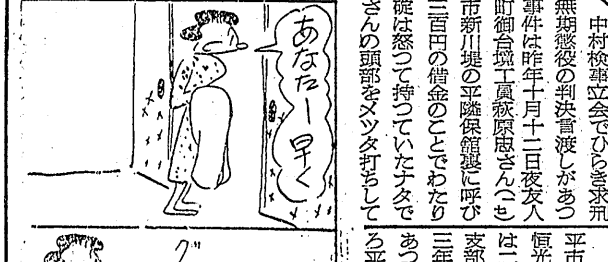 中村検事立会でひらき求刑
無期懲役の判決言渡しがあつ
事件は昨年十月十二日夜友人
町御台境工員萩原忠さん
市新川堤の平隣保館裏に呼び
三百円の借金のことでわたり
碇は怒つて持つていたナタで
さんの頭部をメツタ打ちして
平市
恒光
は二
支部
三年
あつ
ろ平
あなたー早く